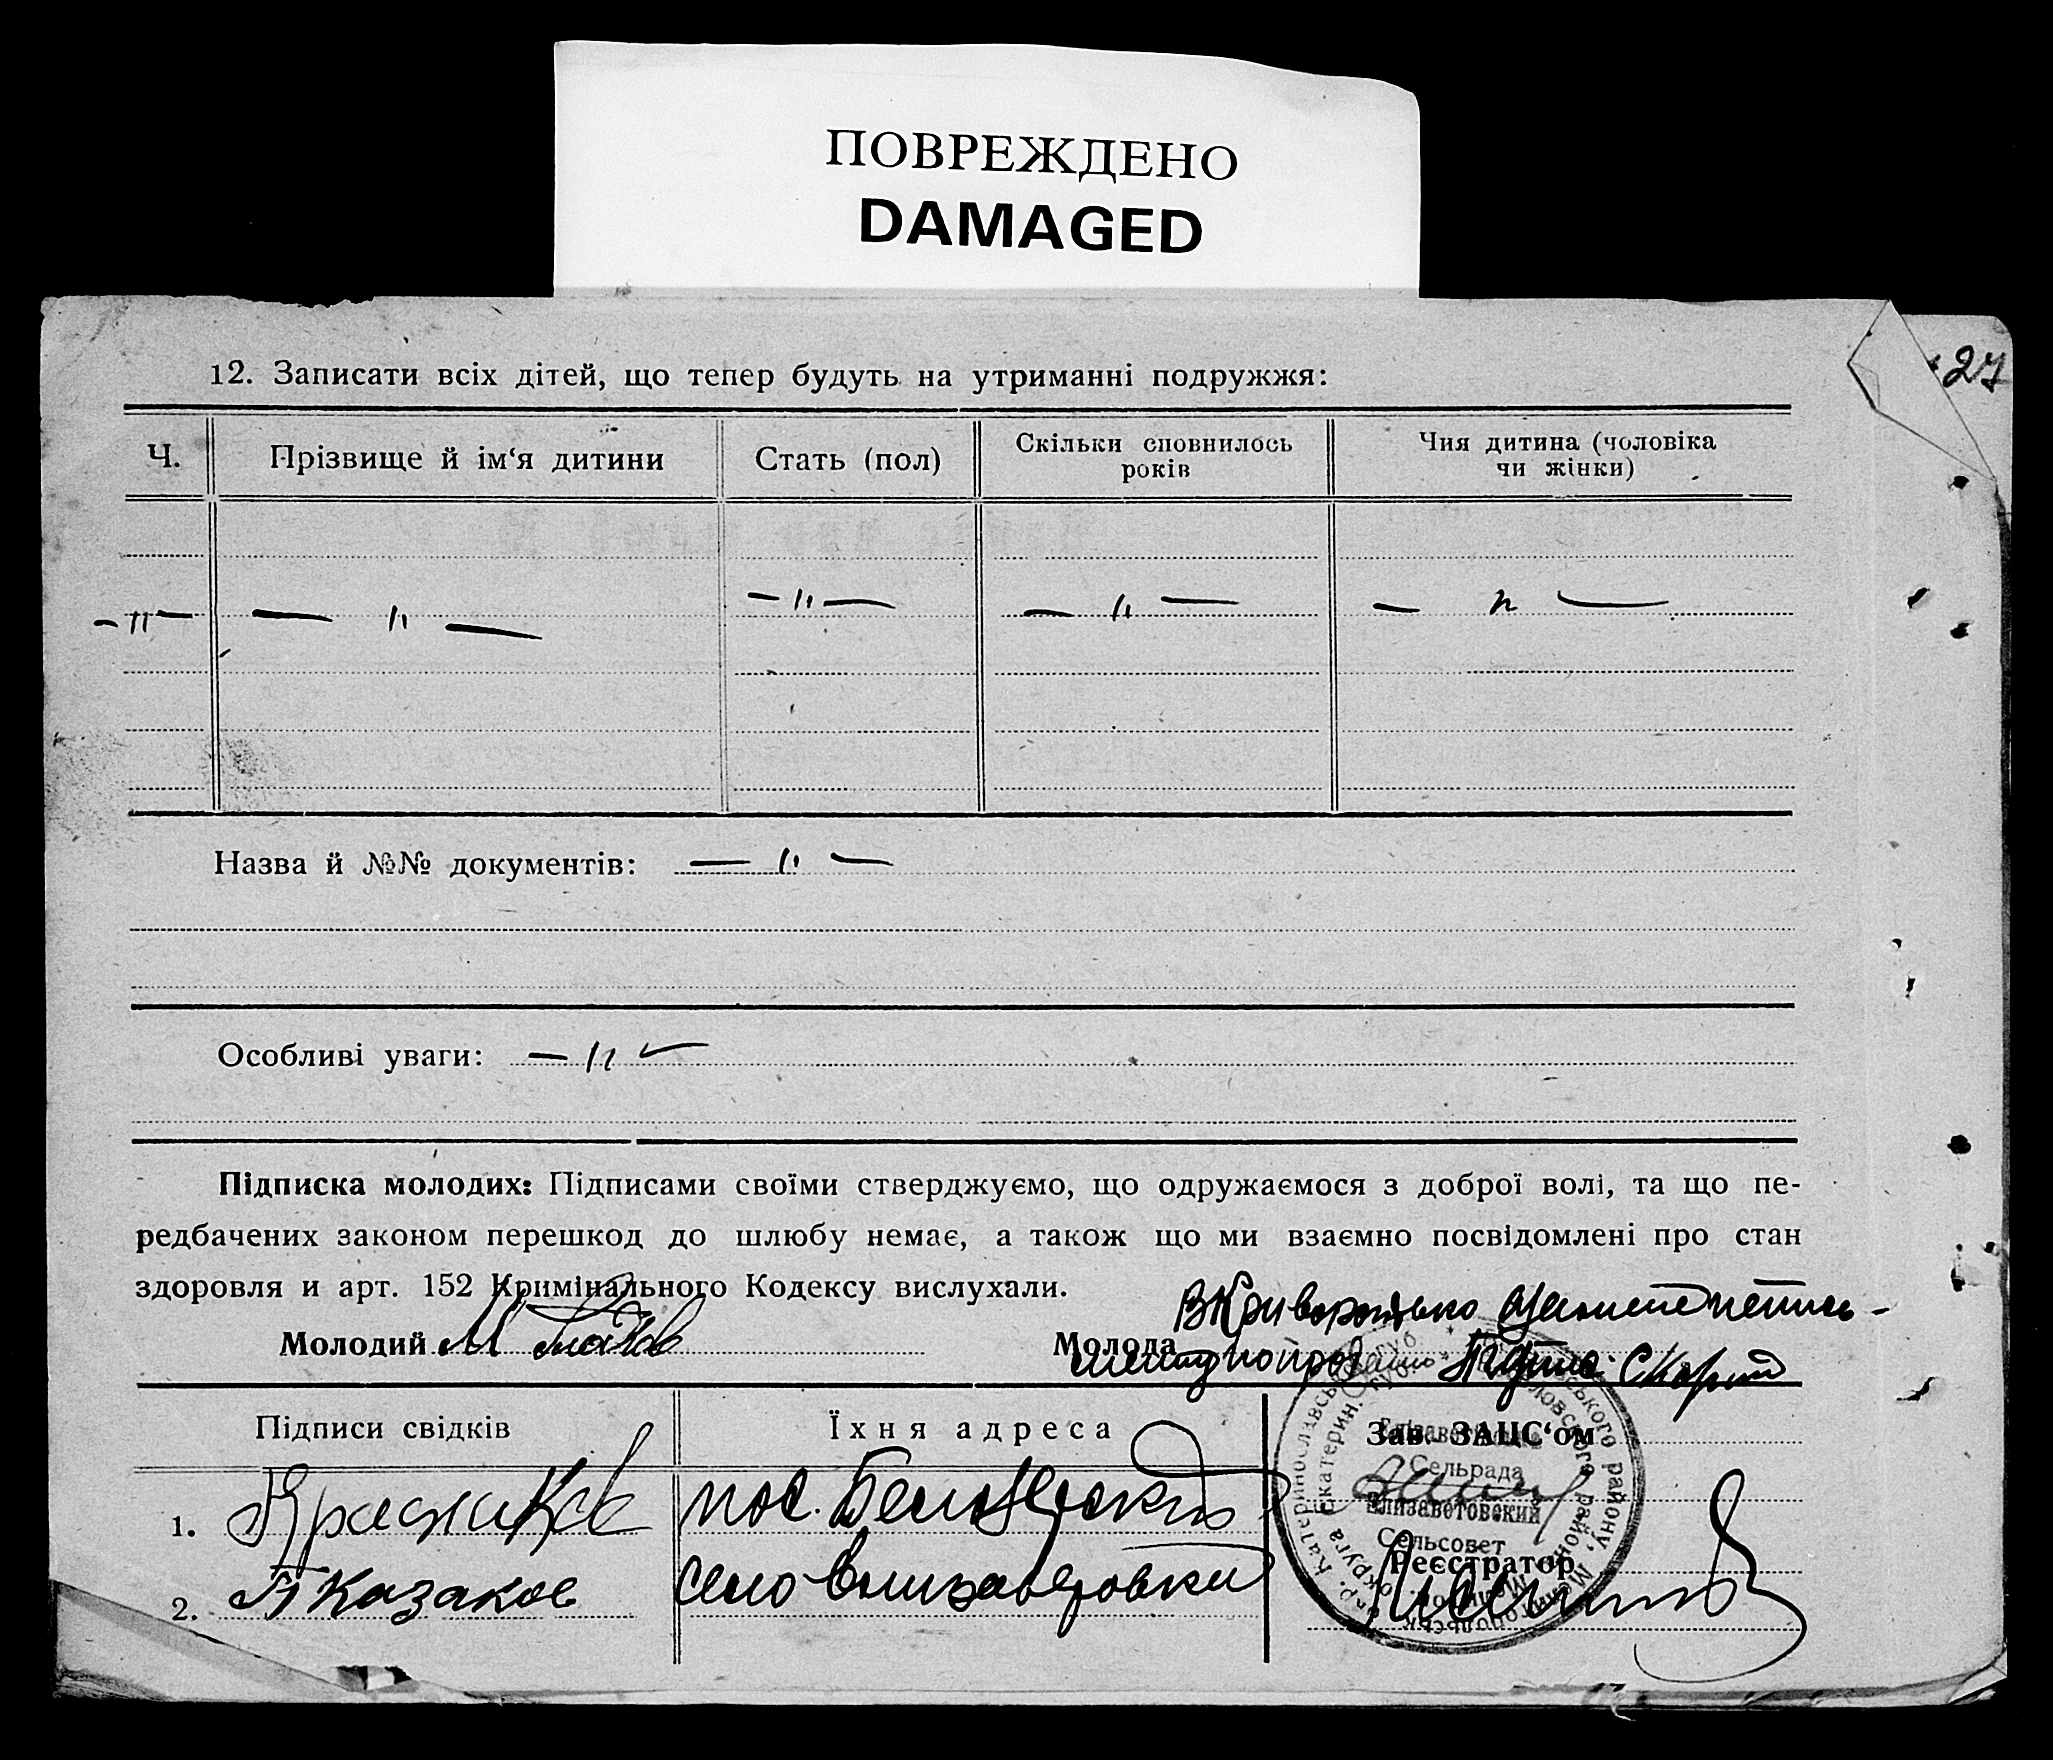 ПОВРЕЖДЕНО
DAMAGED
27
12. Записати всіх дітей, що тепер будуть на утриманні подружжя:
Ч. Прізвище й ім‘я дитини Стать (пол) Скільки сповнилось років Чия дитина (чоловіка чи жінки)
— 〃 — — 〃 — — 〃 — — 〃 — — 〃 —
Назва й №№ документів: — 〃 —
Особливі уваги: — 〃 —
Підписка молодих: Підписами своїми стверджуємо, що одружаємося з доброї волі, та що пе-
редбачених законом перешкод до шлюбу немає, а також що ми взаємно посвідомлені про стан
здоровля и арт. 152 Кримінального Кодексу вислухали.
Молодий М
Молода
Підписи свідків Їхня адреса Зав. ЗАЦС‘ом
Сельрада
Елизаветовский
Сельсовет
1. пос.
Реєстратор
2. П Казаков село Елизаветовки